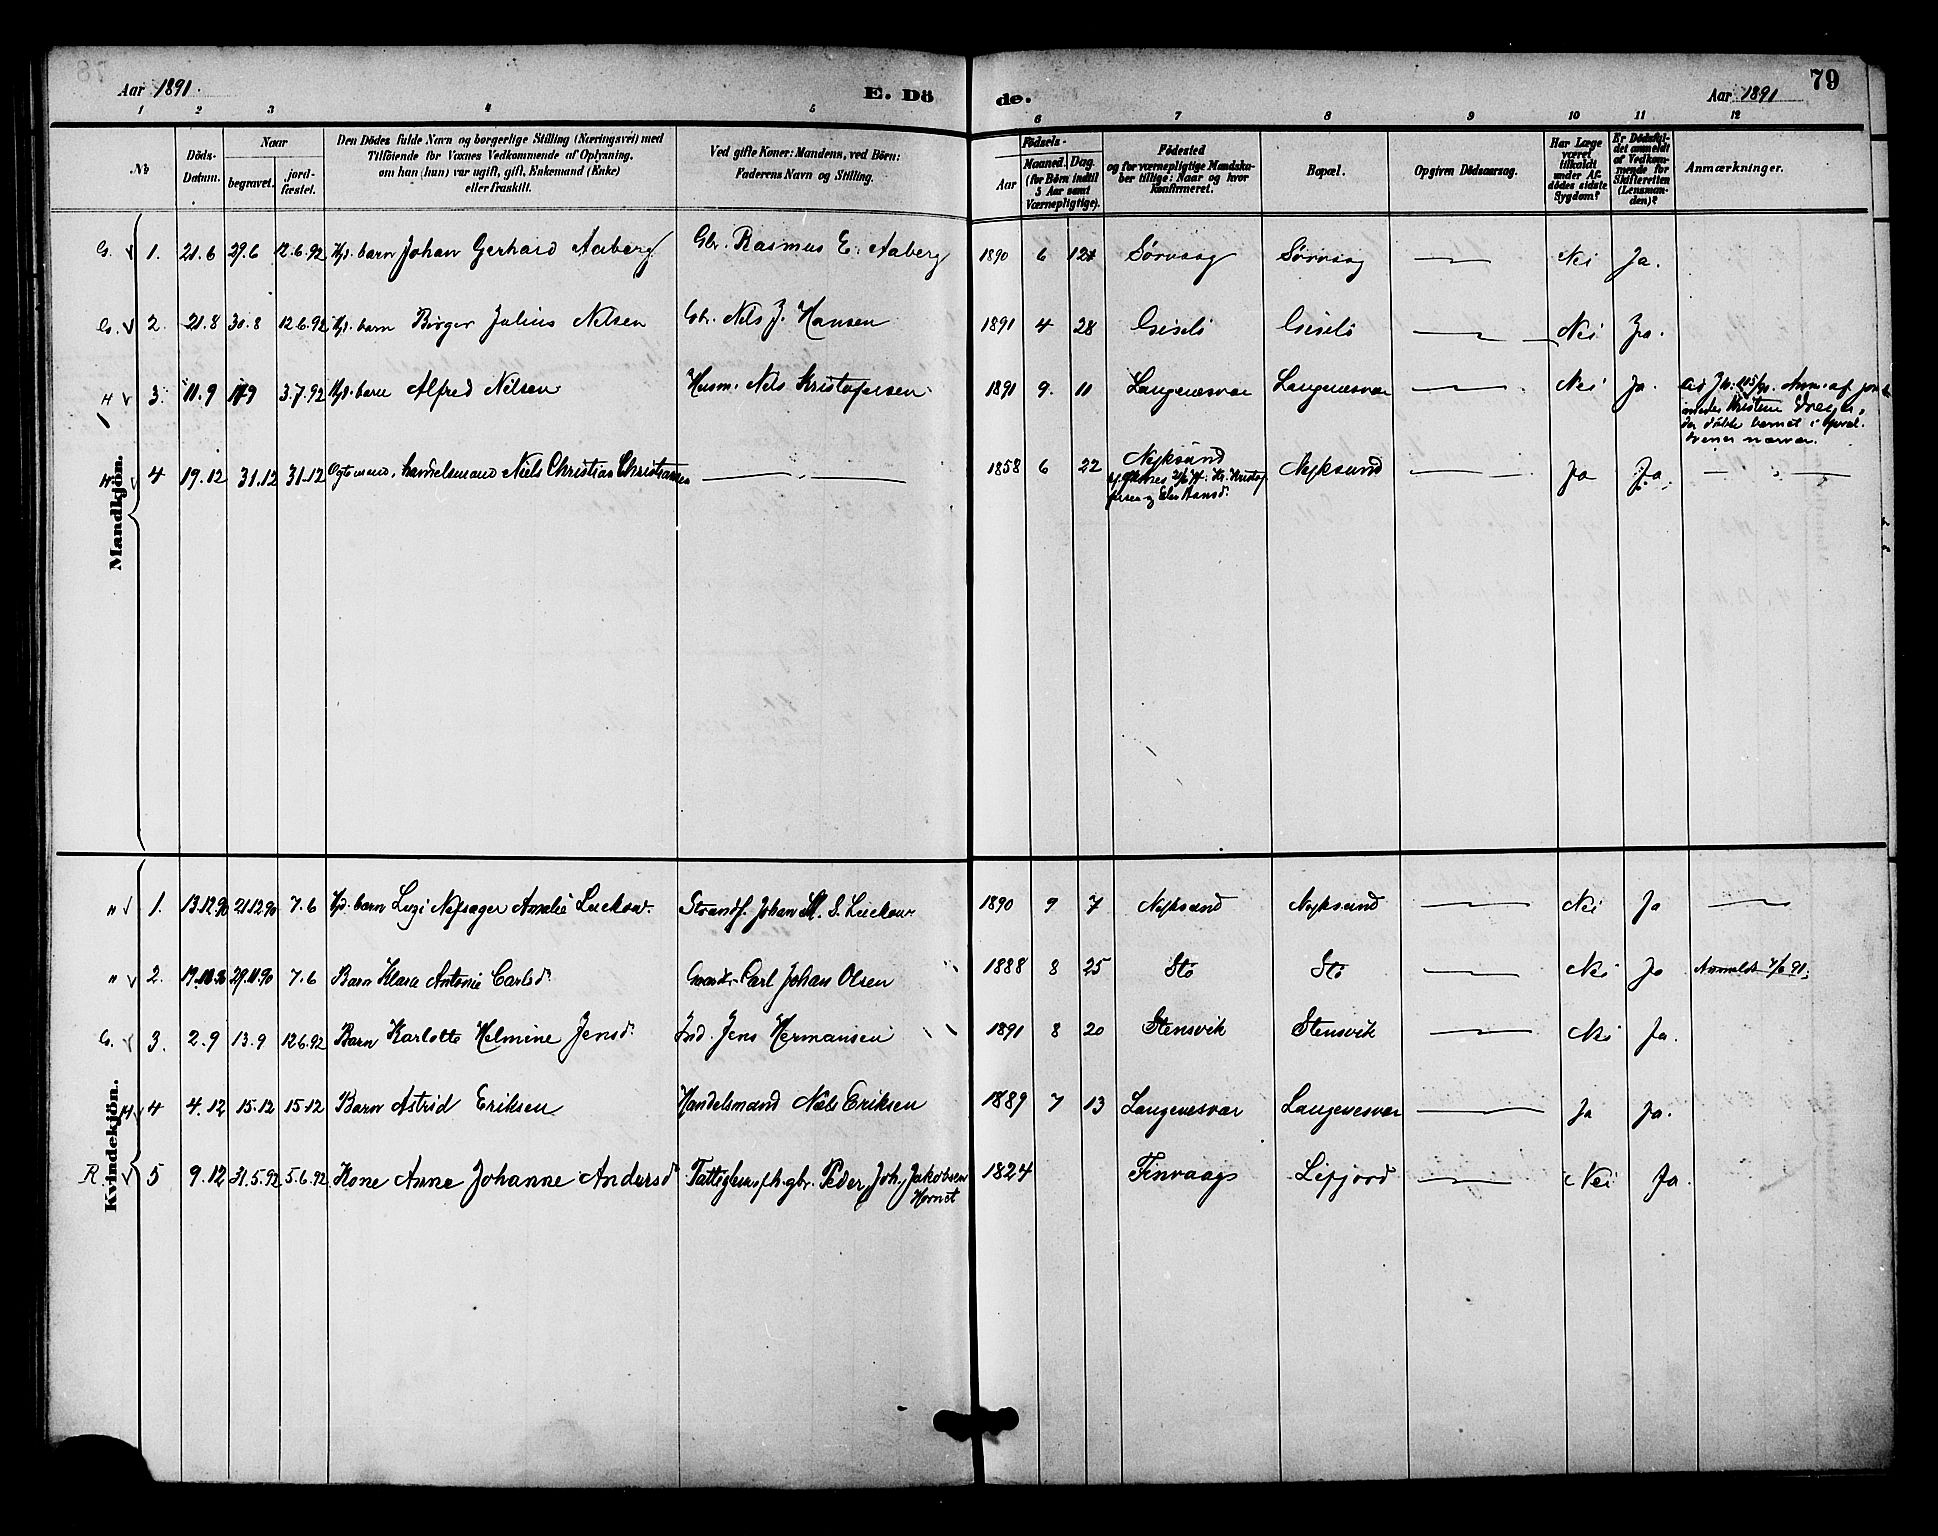 Aar 1891.
E. Dö
de.
Aar 1891
79
1 2 3 4 5 6 7 8 9 10 11 12
No
Döds-
Datum.
Naar
begravet.
jord-
fæstet.
Den Dödes fulde Navn og borgerlige Stilling (Næringsvei) med
Tilföiende for Voxnes Vedkommende af Oplysning,
om han (hun) var ugift, gift, Enkemand (Enke)
eller fraskilt.
Ved gifte Koner: Mandens, ved Börn:
Faderens Navn og Stilling.
Födsels-
Aar
Maaned. Dag.
(for Börn indtil
5 Aar samt
Værnepligtige).
Födested
og for værnepligtige Mandska-
ber tillige: Naar og hvor
konfirmeret.
Bopæl.
Opgiven Dödsaarsag.
Har Læge
været
tilkaldt
under Af-
dödes sidste
Sygdom?
Er Dödsfal-
det anmeldt
af Vedkom-
mende for
Skifteretten
(Lensman-
den)?
Anmærkninger.
Mandkjön.
G. 1. 21.6 29.6 12.6.92 Hjd. barn Johan Gerhard Aaberg Gbr. Rasmus E. Aaberg 1890 6 Sørvaag Sørvaag — Nei Ja.
G. 2. 21.8 30.8 12.6.92 Hjd. barn Birger Julius Nelsen Gbr. Nels J. Hansen 1891 4 28 Gislö Gislö — Nei Ja.
H 3. 11.9 3.7.92 Hjd. barn Alfred Nilsen Husm. Nels Kristofersen 1891 9. 11 Langenesvær Langenesvær — Nei Ja. Anm. af jorde
moder Kristine
der døbte barnet i
nærvær.
H. 4 19.12 31.12 31.12 Ugt. mand, handelsmand Niels Christian Christiansen — 1858 6 22 Nyksund Nyksund — Ja Ja. —
Hansd.
Kvindekjön.
" 1. 13.12.90 21.12.90 7.6 Hjd. barn Amalie Luckow. Strands. Johan M. S. Luckow 1890 9 7 Nyksund Nyksund — Nei Ja —
" 2. 29.11.90 7.6 Barn Klara Antonie Carlsd. Carl Johan Olsen 1888 8 25 Stö Stö — Nei Ja Anmeldt 7/6 91.
G. 3. 2.9 13.9 12.6.92 Barn Karlotte Helmine Jensd. Ind. Jens Hermansen 1891 8 20 Stensvik Stensvik — Nei Ja.
H 4 4.12 15.12 15.12 Barn Astrid Eriksen Handelsmand Nels Eriksen 1889 7 13 Langenesvær Langenesvær — Ja Ja.
R. 5 9.12 31.5.92 5.6.92 Kone Anne Johanne Andersd. Peder Joh. Jakobsen 1824 Finvaag Lifjord — Nei Ja.